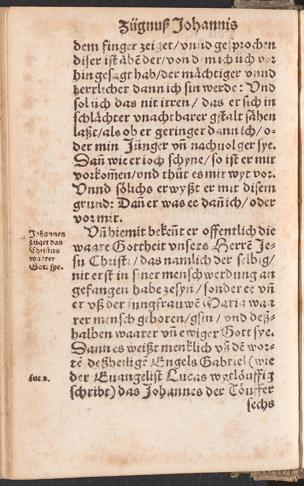 Zügnuß Johannis
dem finger zeiget/vnnd gesprochen
diser ist äbē der/von dem ich üch vor
hingesagt hab/der mächtiger vnnd
herrlicher dann ich sin werde: Vnd
sol üch das nit irren/das er sich in
schlächter vnachtbarer gstalt sähen
laßt/als ob er geringer dann ich/o-
der min Jünger vñ nachuolger sye.
Dañ wie er ioch schyne/so ist er mir
vorkom̃en/vnd thüt es mir wyt vor.
Vnnd sölichs erwyßt er mit disem
grund: Dañ er was ee dañ ich/oder
vor mir.
Vñ hiemit bekeñt er offentlich die
waare Gottheit vnsers Herrē Je-
su Christi/das namlich der selbig/
nit erst in siner menschwerdung an
gefangen habe zesyn/sonder ee vñ
er vß der jungfrauwē Maria waa
rer mensch geboren/gsin/vnd deß-
halben waarer vñ ewiger Gott sye.
Dann es weißt menklich vß dē wor-
tē deß heiligē Engels Gabriel (wie
der Euangelist Lucas wytlöuffig
schribt) das Johannes der Töuffer
sechs
Johannes
züget das
Christus
waarer
Gott sye.
Luc.1.